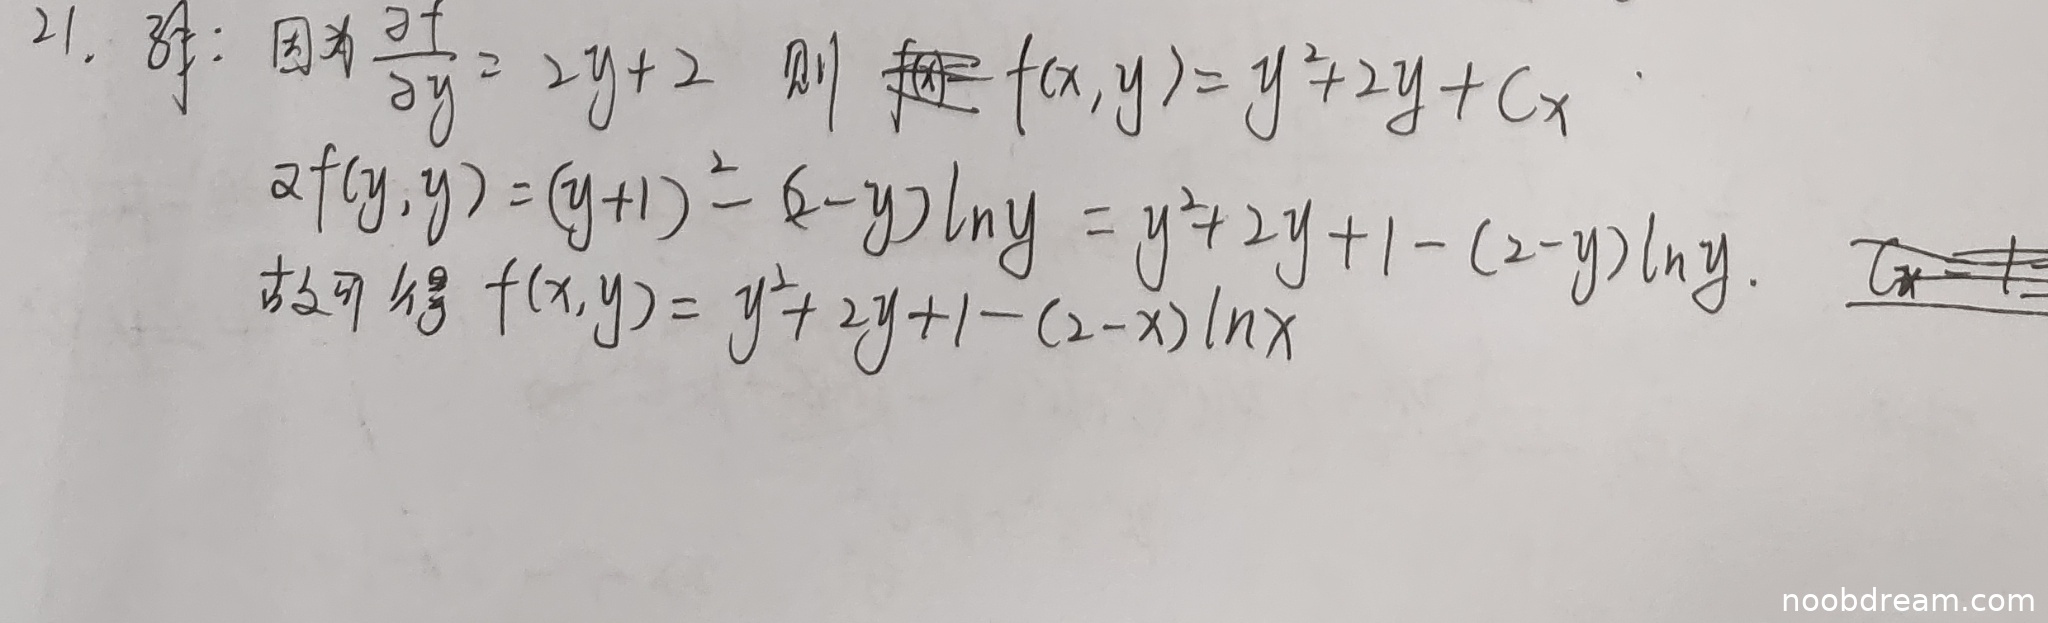 21. 解: 因为 ∂f/∂y = 2y+2 则 f(x,y)= y²+2y+Cx
2f(y,y)=(y+1)²-(2-y)lny = y²+2y+1-(2-y)lny.
故可得 f(x,y)= y²+2y+1-(2-x)lnx
noobdream.com